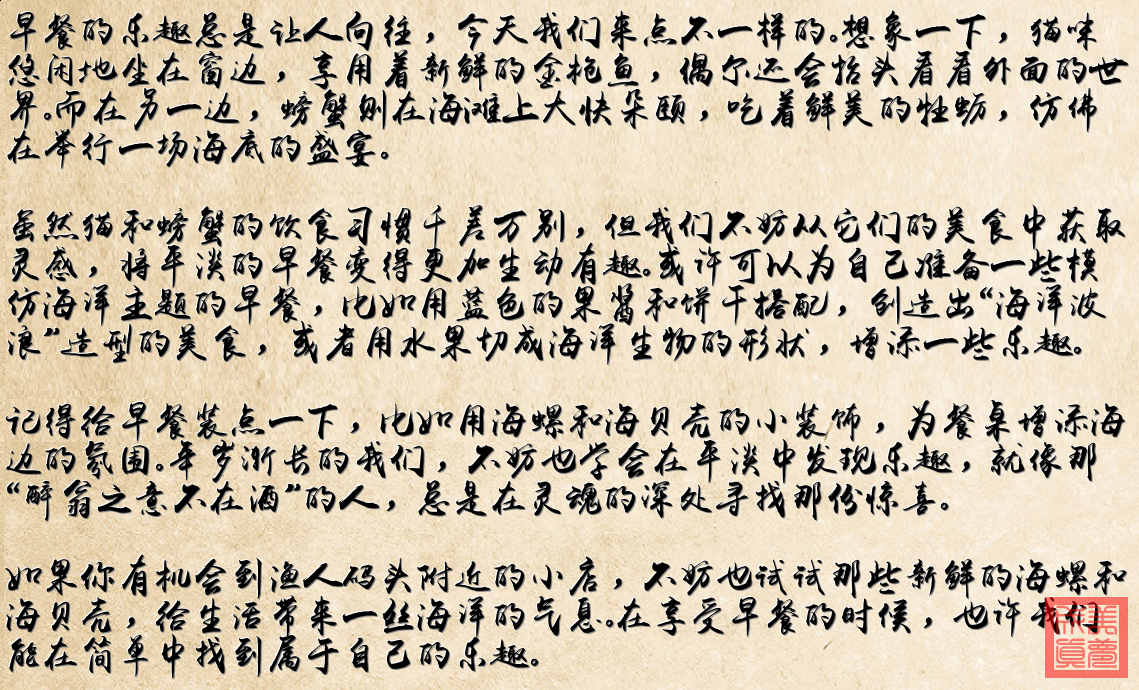 早餐的乐趣总是让人向往，今天我们来点不一样的。想象一下，猫咪
悠闲地坐在窗边，享用着新鲜的金枪鱼，偶尔还会抬头看看外面的世
界。而在另一边，螃蟹则在海滩上大快朵颐，吃着鲜美的牡蛎，仿佛
在举行一场海底的盛宴。
虽然猫和螃蟹的饮食习惯千差万别，但我们不妨从它们的美食中获取
灵感，将平淡的早餐变得更加生动有趣。或许可以为自己准备一些模
仿海洋主题的早餐，比如用蓝色的果酱和饼干搭配，创造出“海洋波
浪”造型的美食，或者用水果切成海洋生物的形状，增添一些乐趣。
记得给早餐装点一下，比如用海螺和海贝壳的小装饰，为餐桌增添海
边的氛围。年岁渐长的我们，不妨也学会在平淡中发现乐趣，就像那
“醉翁之意不在酒”的人，总是在灵魂的深处寻找那份惊喜。
如果你有机会到渔人码头附近的小店，不妨也试试那些新鲜的海螺和
海贝壳，给生活带来一丝海洋的气息。在享受早餐的时候，也许我们
能在简单中找到属于自己的乐趣。